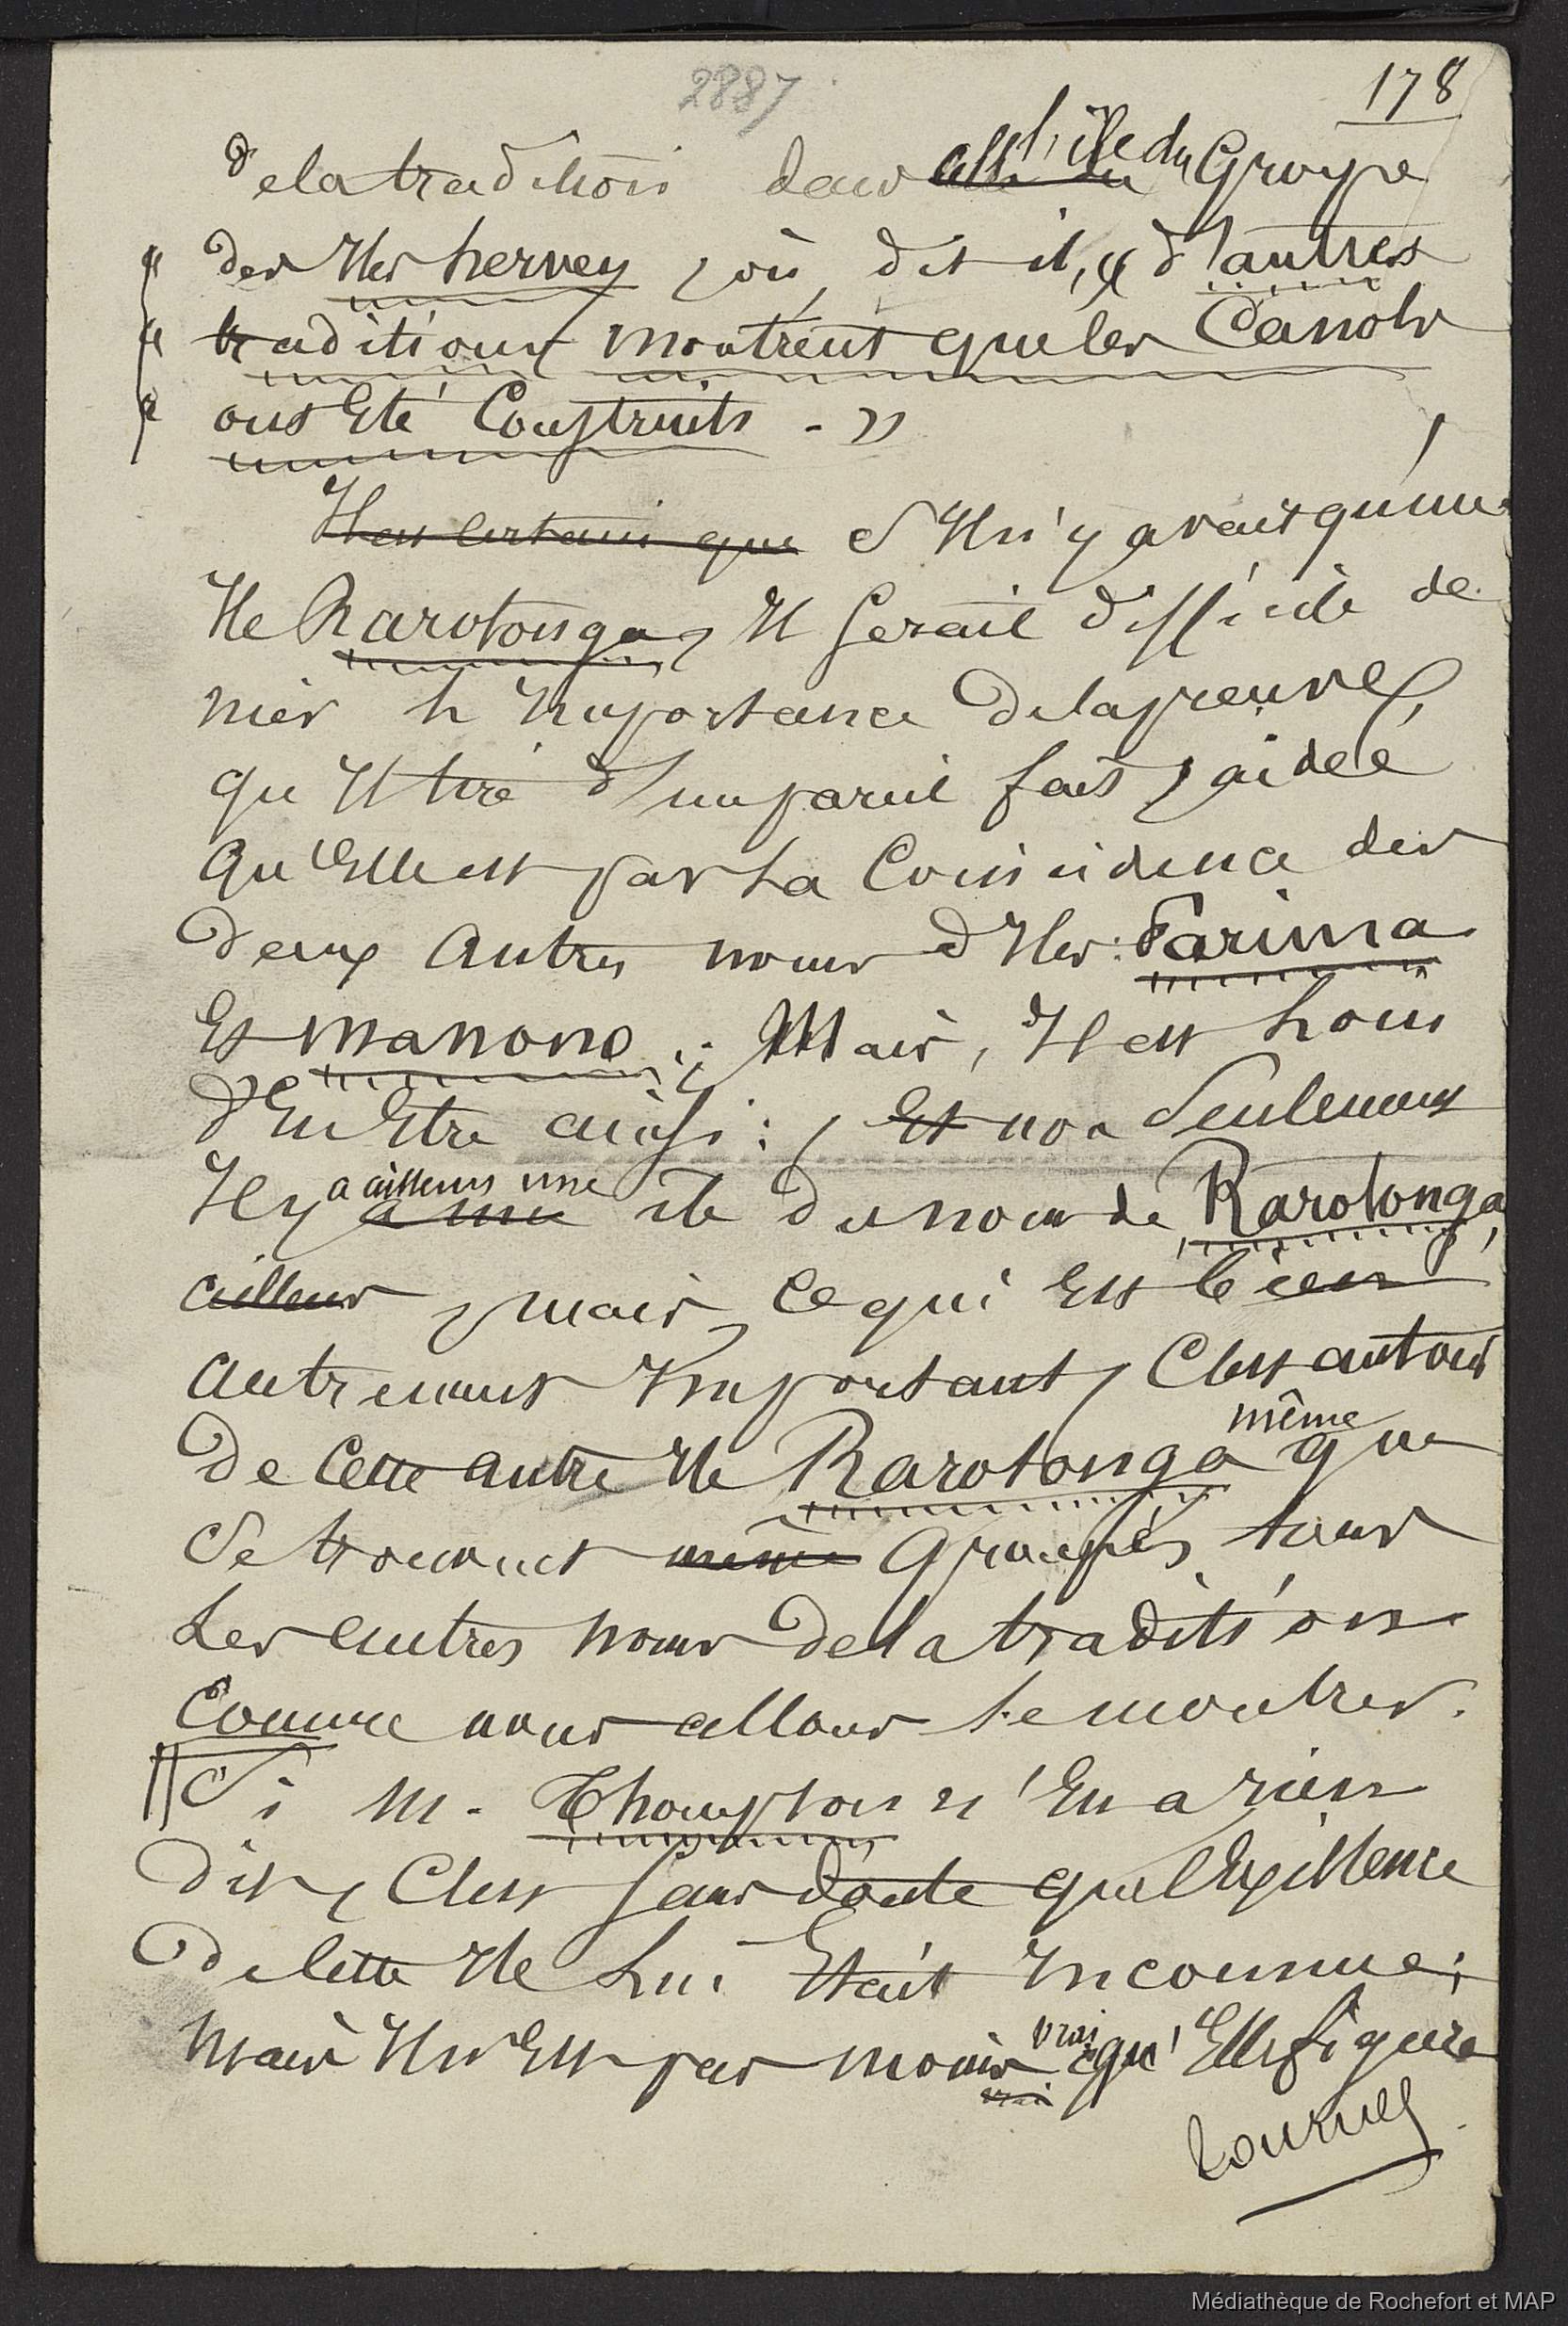 2887
178
de la tradition dans celle du l'île du Groupe
des Iles hervey, où, dit il, « d'autres
« traditions montrent que les Canots
« ont Eté Construits. »
Il est certain que S'Il n'y avait qu'une
Ile Rarotonga, Il serait difficile de
nier L'Importance de la preuve,
qu'Il tire d'un pareil fait, aidée
qu'Elle est par La Coïncidence des
deux autres noms d'Iles: Parima
Et Manono; Mais, Il est Loin
d'En Etre ainsi: Et non Seulement
Il y a une a ailleurs une île du nom de Rarotonga,
ailleurs, mais, Ce qui Est bien
autrement Important, C'est autour
De Cette autre Ile Rarotonga même que
Se trouvent même Groupés, tous
Les autres noms de la tradition
Comme nous allons Le montrer.
Si M. Thompson n'En a rien
dit, C'est sans doute que l'Existence
de Cette Ile Lui Etait Inconnue;
Mais Il n'Est pas moins vrai vrai qu'Elle figure
tournez
Médiathèque de Rochefort et MAP